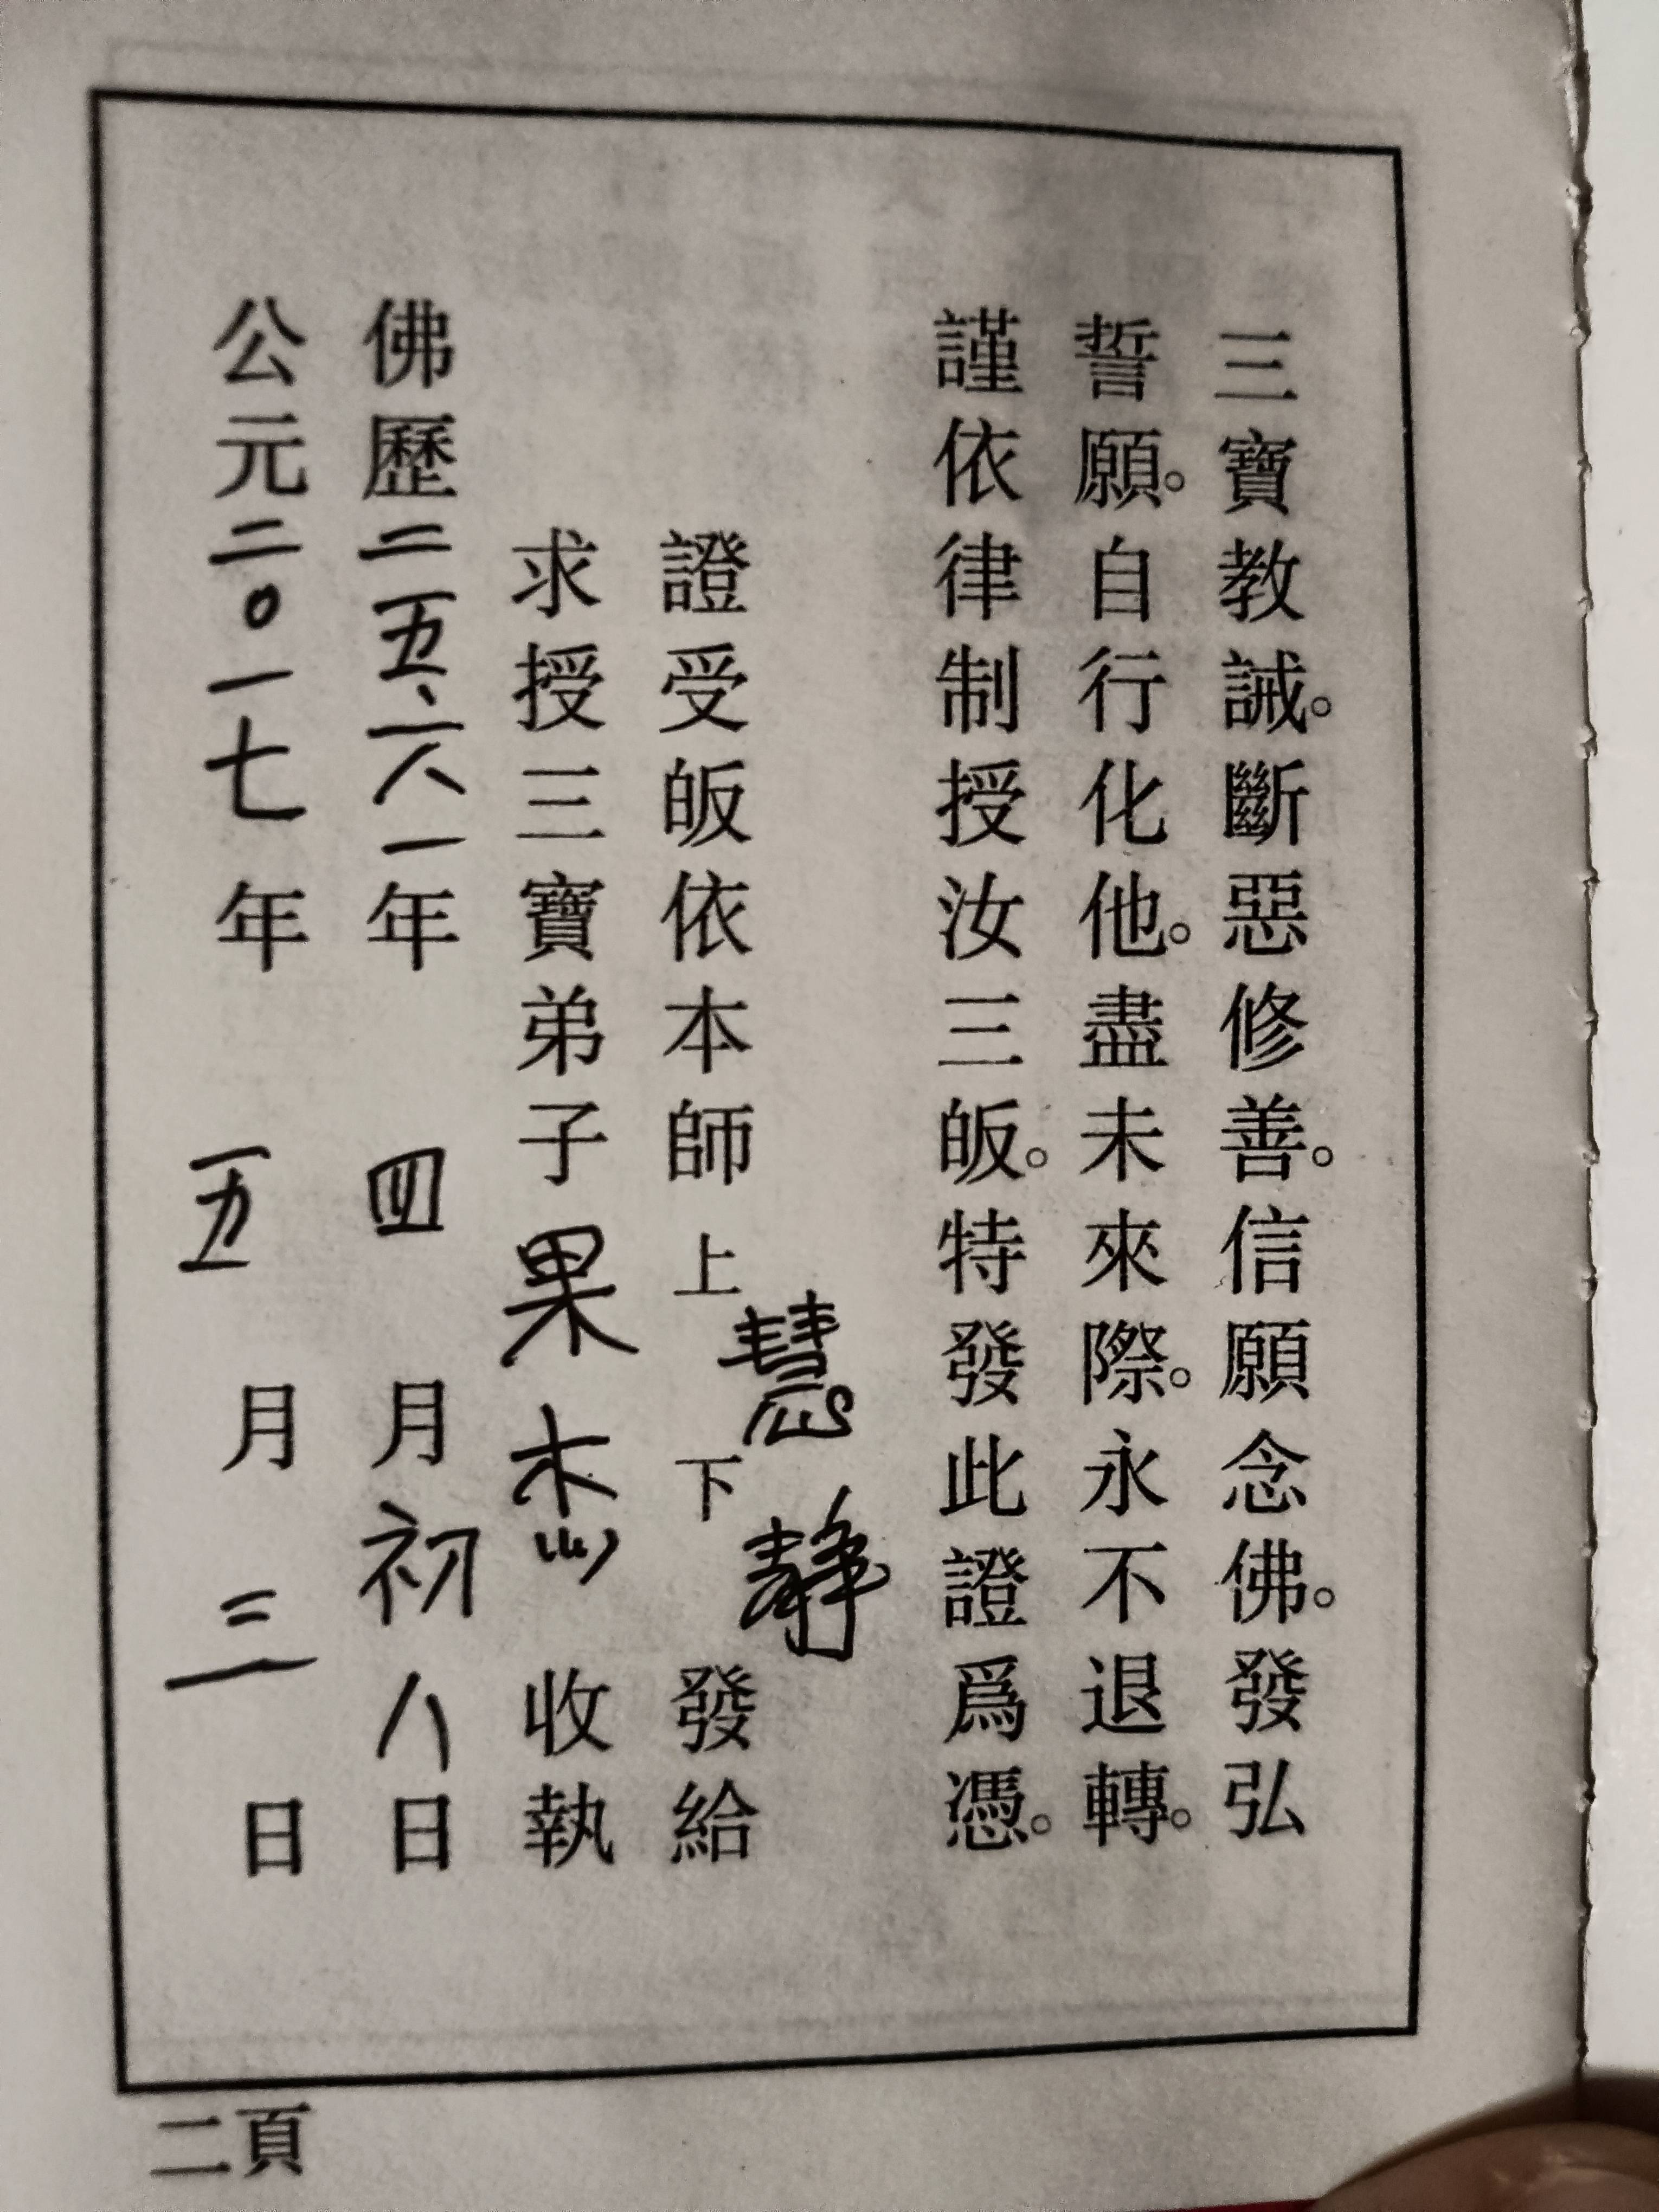 三寶教誡。斷惡修善。信願念佛。發弘
誓願。自行化他。盡未來際。永不退轉。
謹依律制授汝三皈。特發此證爲憑。
證受皈依本師上慧下靜發給
求授三寶弟子果杰收執
佛歷二五六一年四月初八日
公元二0一七年五月三日
二頁